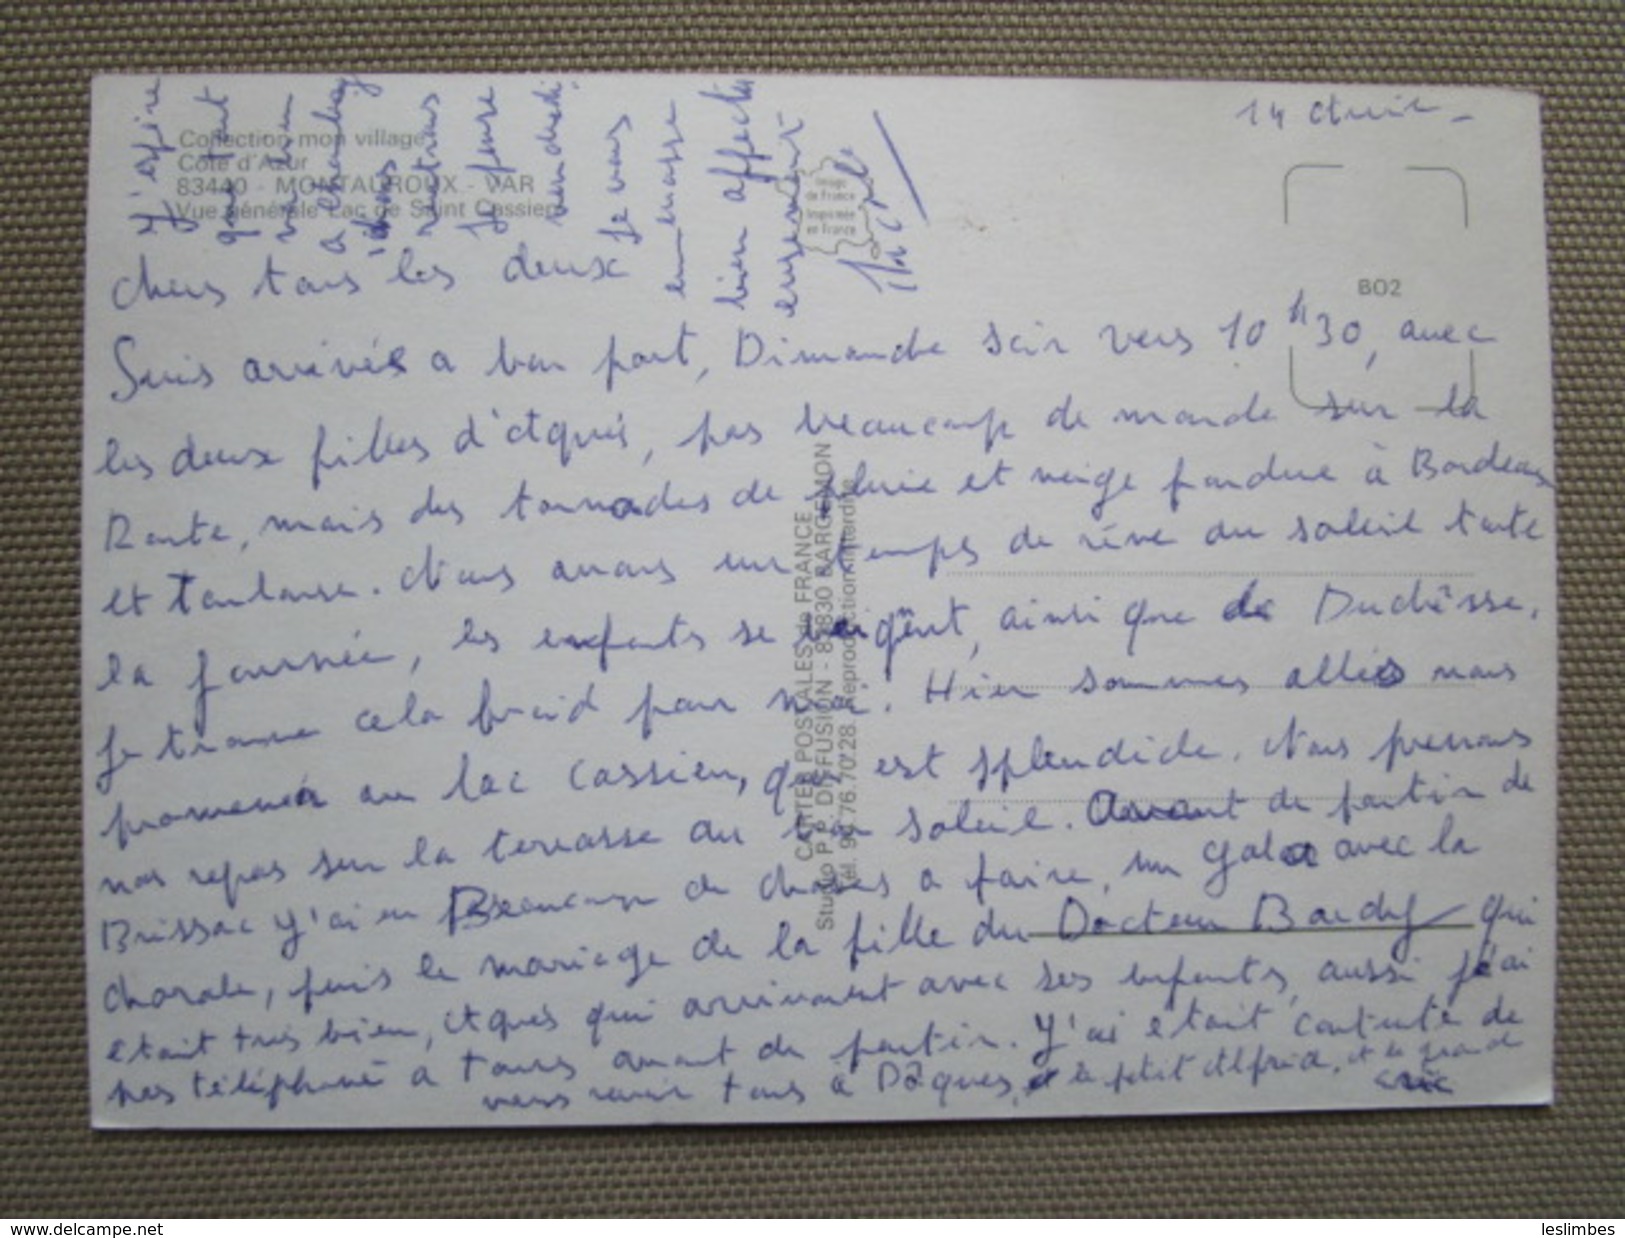 14 Avril -
Collection mon village
Côte d'Azur
83440 - MONTAUROUX - VAR
Vue générale Lac de Saint Cassien
Image
de France
Imprimée
en France
B02
Chers tous les deux
Suis arrivés a bon port, Dimanche soir vers 10 h 30, avec
les deux filles d'Agnès, pas beaucoup de monde sur la
Route, mais des tornades de pluie et neige fondue à Bordeaux
et Toulouse. Nous avons un temps de rêve du soleil toute
la journée, les enfants se baignent, ainsi que Duchêsse,
Je trouve cela froid pour moi. Hier sommes allés nous
promener au lac Cassien, qui est splendide. Nous prenons
nos repas sur la terrasse au bon soleil. Avant de partir de
Brissac J'ai eu Beaucoup de choses a faire, un gala avec la
chorale, puis le mariage de la fille du Docteur Bardy qui
etait très bien, Agnès qui arrivait avec ses enfants, aussi j'ai
pas téléphoné a tous avant de partir. J'ai etait contente de
vous revoir tous à Pâques, le petit Alfred, et le grand
J'espire
que tout
va bien
a
vous
Je pense
vendredi.
Je vous
embrasse
bien affectu
eusement
CARTES POSTALES de FRANCE
Studio P.P. DIFFUSION - 83830 BARGEMON
Tél. 94.76.70.28 Reproduction interdite
www.delcampe.net
leslimbes